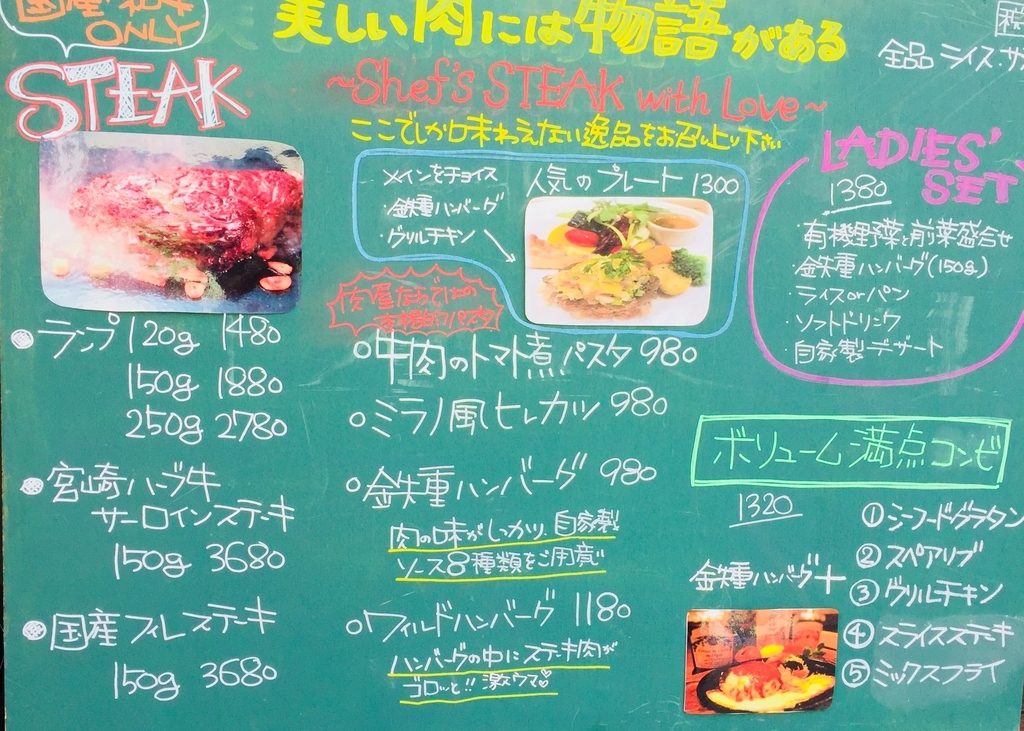 国産和牛
ONLY
美しい肉には物語がある
全品 ライス・サ
STEAK
~Shef's STEAK with Love~
ここでしか味わえない逸品をお召し上り下さい
メインをチョイス
・鉄重ハンバーグ
・グリルチキン
人気のプレート 1300
LADIES'
SET
1380
・有機野菜と前菜盛合せ
・鉄重ハンバーグ(150g)
・ライスorパン
・ソフトドリンク
・自家製デザート
ランプ 120g 1480
150g 1880
250g 2780
宮崎ハーブ牛
サーロインステーキ
150g 3680
国産フィレステーキ
150g 3680
肉屋ならではの
本格的パスタ
牛肉のトマト煮パスタ 980
ミラノ風ヒレカツ 980
鉄重ハンバーグ 980
肉の味がしっかり、自家製
ソース8種類をご用意
ワイルドハンバーグ 1180
ハンバーグの中にステーキ肉が
ゴロッと!! 激ウマ♡
ボリューム満点コンビ
1320
鉄重ハンバーグ+
①シーフードグラタン
②スペアリブ
③グリルチキン
④スライスステーキ
⑤ミックスフライ